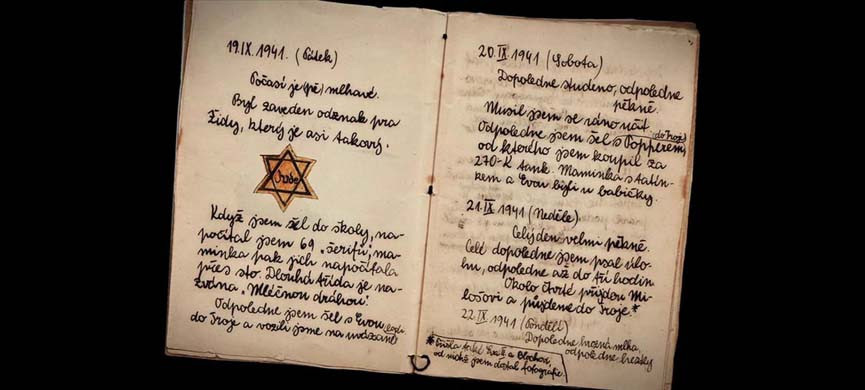 19.IX.1941. (Pátek)
Počasí je (pě) mlhavé.
Byl zaveden odznak pro
Židy, který je asi takový.
Jude
Když jsem šel do školy, na-
počítal jsem 69 "šerifů", ma-
minka pak jich napočítala
přes sto. Dlouhá třída je na-
zvána "Mléčnou dráhou".
Odpoledne jsem šel s Evou
do Troje a vozili jsme na uvázané
lodi
20.IX.1941 (Sobota)
Dopoledne studeno, odpoledne
pěkně.
Musil jsem se ráno
Odpoledne jsem šel s Popperem,
do Troje
od kterého jsem koupil za
270-K tank. Maminka s tatín-
kem a Evou byli u babičky.
21.IX.1941 (Neděle)
Celý den velmi pěkně.
Celé dopoledne jsem psal úlo-
hu, odpoledne až do tří hodin.
Okolo čtvrté přijdou Mi-
lošovi a půjdeme do Troje.*
22.IX.1941 (Pondělí)
Dopoledne hrozná mlha,
odpoledne hezky
od nichž jsem dostal fotografie.